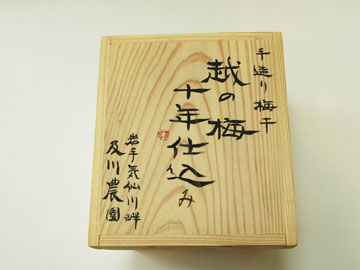 手造り梅干
越の梅
十年仕込み
岩手気仙川畔
及川農園